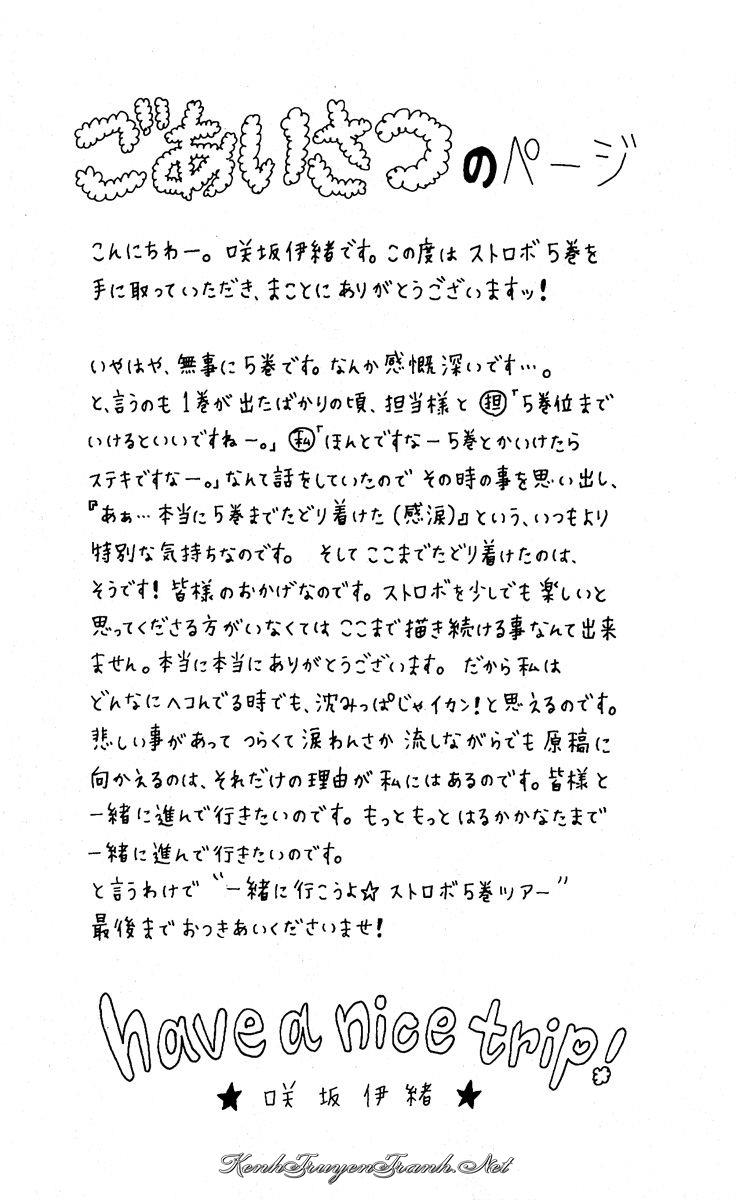 ごあいさつのページ
こんにちわー。咲坂伊緒です。この度は ストロボ5巻を
手に取っていただき、まことに ありがとうございますッ!
いやはや、無事に5巻です。なんか感慨深いです…。
と、言うのも 1巻が出たばかりの頃、担当様と 担「5巻位まで
いけるといいですねー。」 私「ほんとですなー5巻とかいけたら
ステキですなー。」なんて話をしていたので その時の事を思い出し、
『あぁ…本当に5巻までたどり着けた(感涙)』という、いつもより
特別な気持ちなのです。 そしてここまでたどり着けたのは、
そうです!皆様のおかげなのです。ストロボを少しでも楽しいと
思ってくださる方がいなくては ここまで描き続ける事なんて出来
ません。本当に本当にありがとうございます。 だから私は
どんなにヘコんでる時でも、沈みっぱじゃイカン!と思えるのです。
悲しい事があって つらくて涙わんさか 流しながらでも原稿に
向かえるのは、それだけの理由が私にはあるのです。皆様と
一緒に進んで行きたいのです。もっともっとはるかかなたまで
一緒に進んで行きたいのです。
と言うわけで “一緒に行こうよ☆ ストロボ5巻ツアー”
最後まで おつきあいくださいませ!
have a nice trip!
★ 咲坂伊緒 ★
KenhTruyenTranh.Net